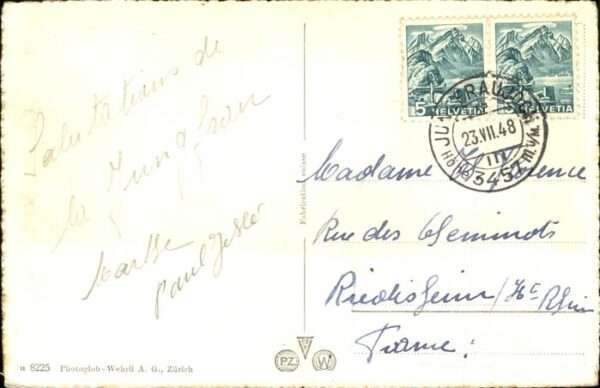 Salutations de
la Jungfrau
Marthe
Paul
5
HELVETIA
HELVETIA
JUNGFRAUJOCH
23.VII.48
HÖHE 3457 M. ü/M.
Fabrication suisse
Madame
Rue des Cheminots
Riedisheim / Ht Rhin
France.
n 8225 Photoglob-Wehrli A. G., Zürich
PZ
W